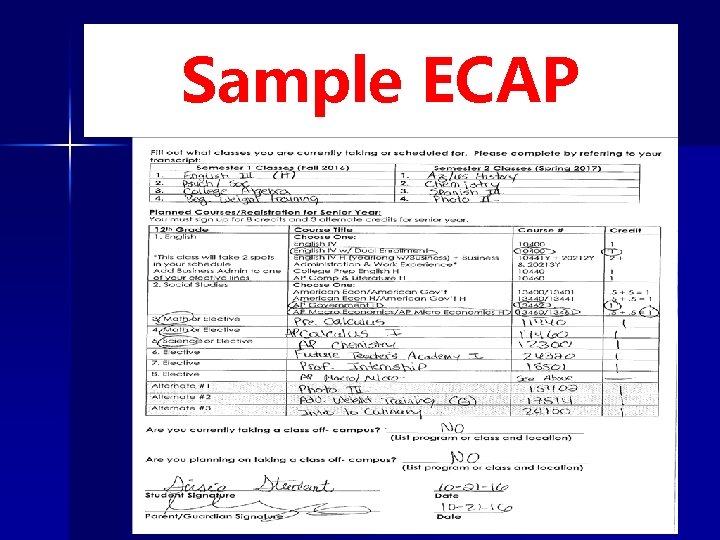 Sample ECAP
Fill out what classes you are currently taking or scheduled for. Please complete by referring to your
transcript:
Semester 1 Classes (Fall 2016) Semester 2 Classes (Spring 2017)
1. English III (H) 1. Az/US History
2. Psych/Soc 2. Chemistry
3. College Algebra 3. Spanish II
4. Beg. Weight Training 4. Photo II
Planned Courses/Registration for Senior Year:
You must sign up for 8 credits and 3 alternate credits for senior year.
12th Grade Course Title Course # Credit
1. English Choose One:
English IV 10400 1
English IV w/ Dual Enrollment 1
*This class will take 2 spots English IV H (Yearlong w/Business) + Business 10441Y + 20212Y 2
in your schedule Administration & Work Experience* & 20213Y
Add Business Admin to one College Prep English H 10440 1
of your elective lines AP Comp & Literature H 10460 1
2. Social Studies Choose One:
American Econ/American Gov't 13400/13401 .5 + .5 = 1
American Econ H/American Gov't H 13440/13441 .5 + .5 = 1
AP Government 1
AP Macro Economics/AP Micro Economics H .5 + .5 = 1
3. Math or Elective Pre Calculus 1
4. Math or Elective AP Calculus I 11460 1
5. Science or Elective AP Chemistry 12300 1
6. Elective Future Teacher's Academy I 1
7. Elective Prof. Internship 1
8. Elective AP Macro/Micro See Above
Alternate #1 Photo III 1
Alternate #2 Adv. Weight Training (G) 1
Alternate #3 Intro to Culinary 24100 1
Are you currently taking a class off- campus? NO
(List program or class and location)
Are you planning on taking a class off- campus? NO
(List program or class and location)
10-21-16
Student Signature Date
10-21-16
Parent/Guardian Signature Date